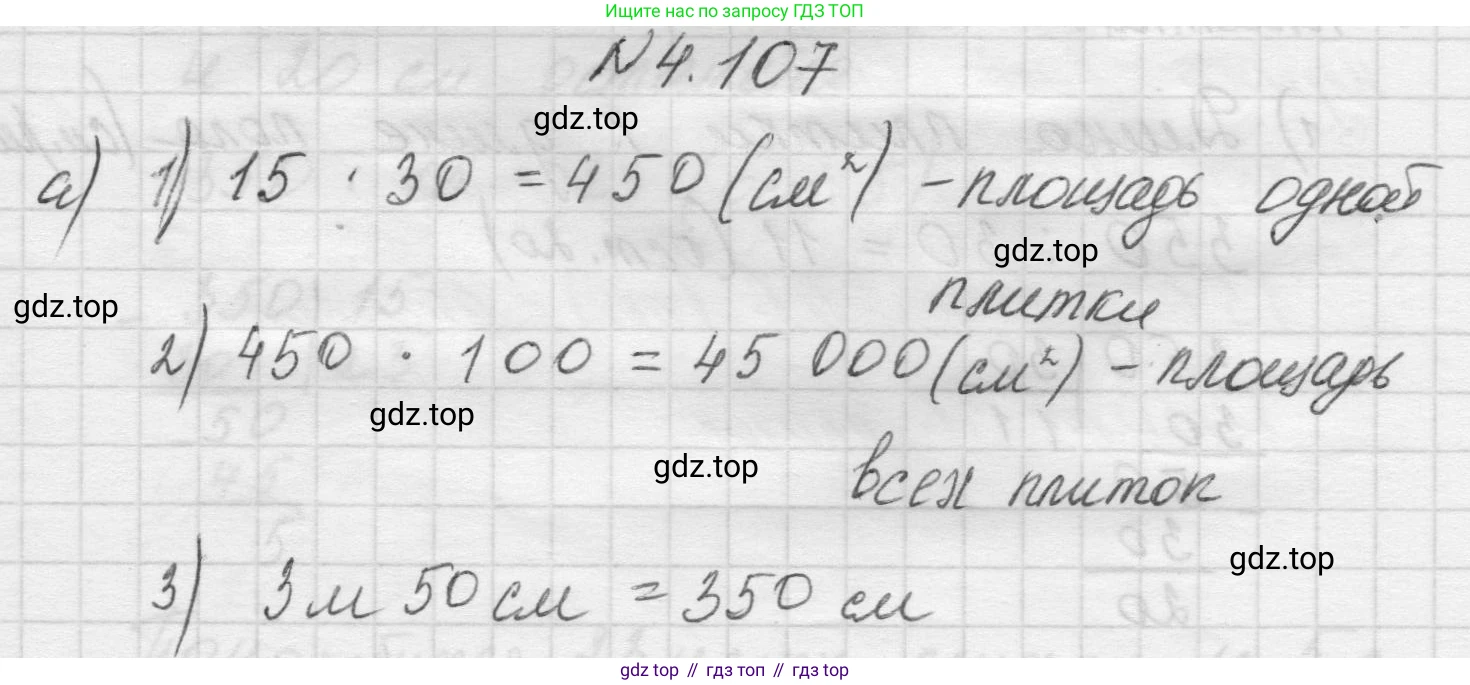 Ищите нас по запросу ГДЗ ТОП
N 4.107
gdz.top
а) 1) 15 · 30 = 450 (см²) – площадь одной
gdz.top
gdz.top
плитки
2) 450 · 100 = 45 000 (см²) – площадь
gdz.top
gdz.top
всех плиток
gdz.top
3) 3 м 50 см = 350 см
gdz top // гдз топ // гдз top